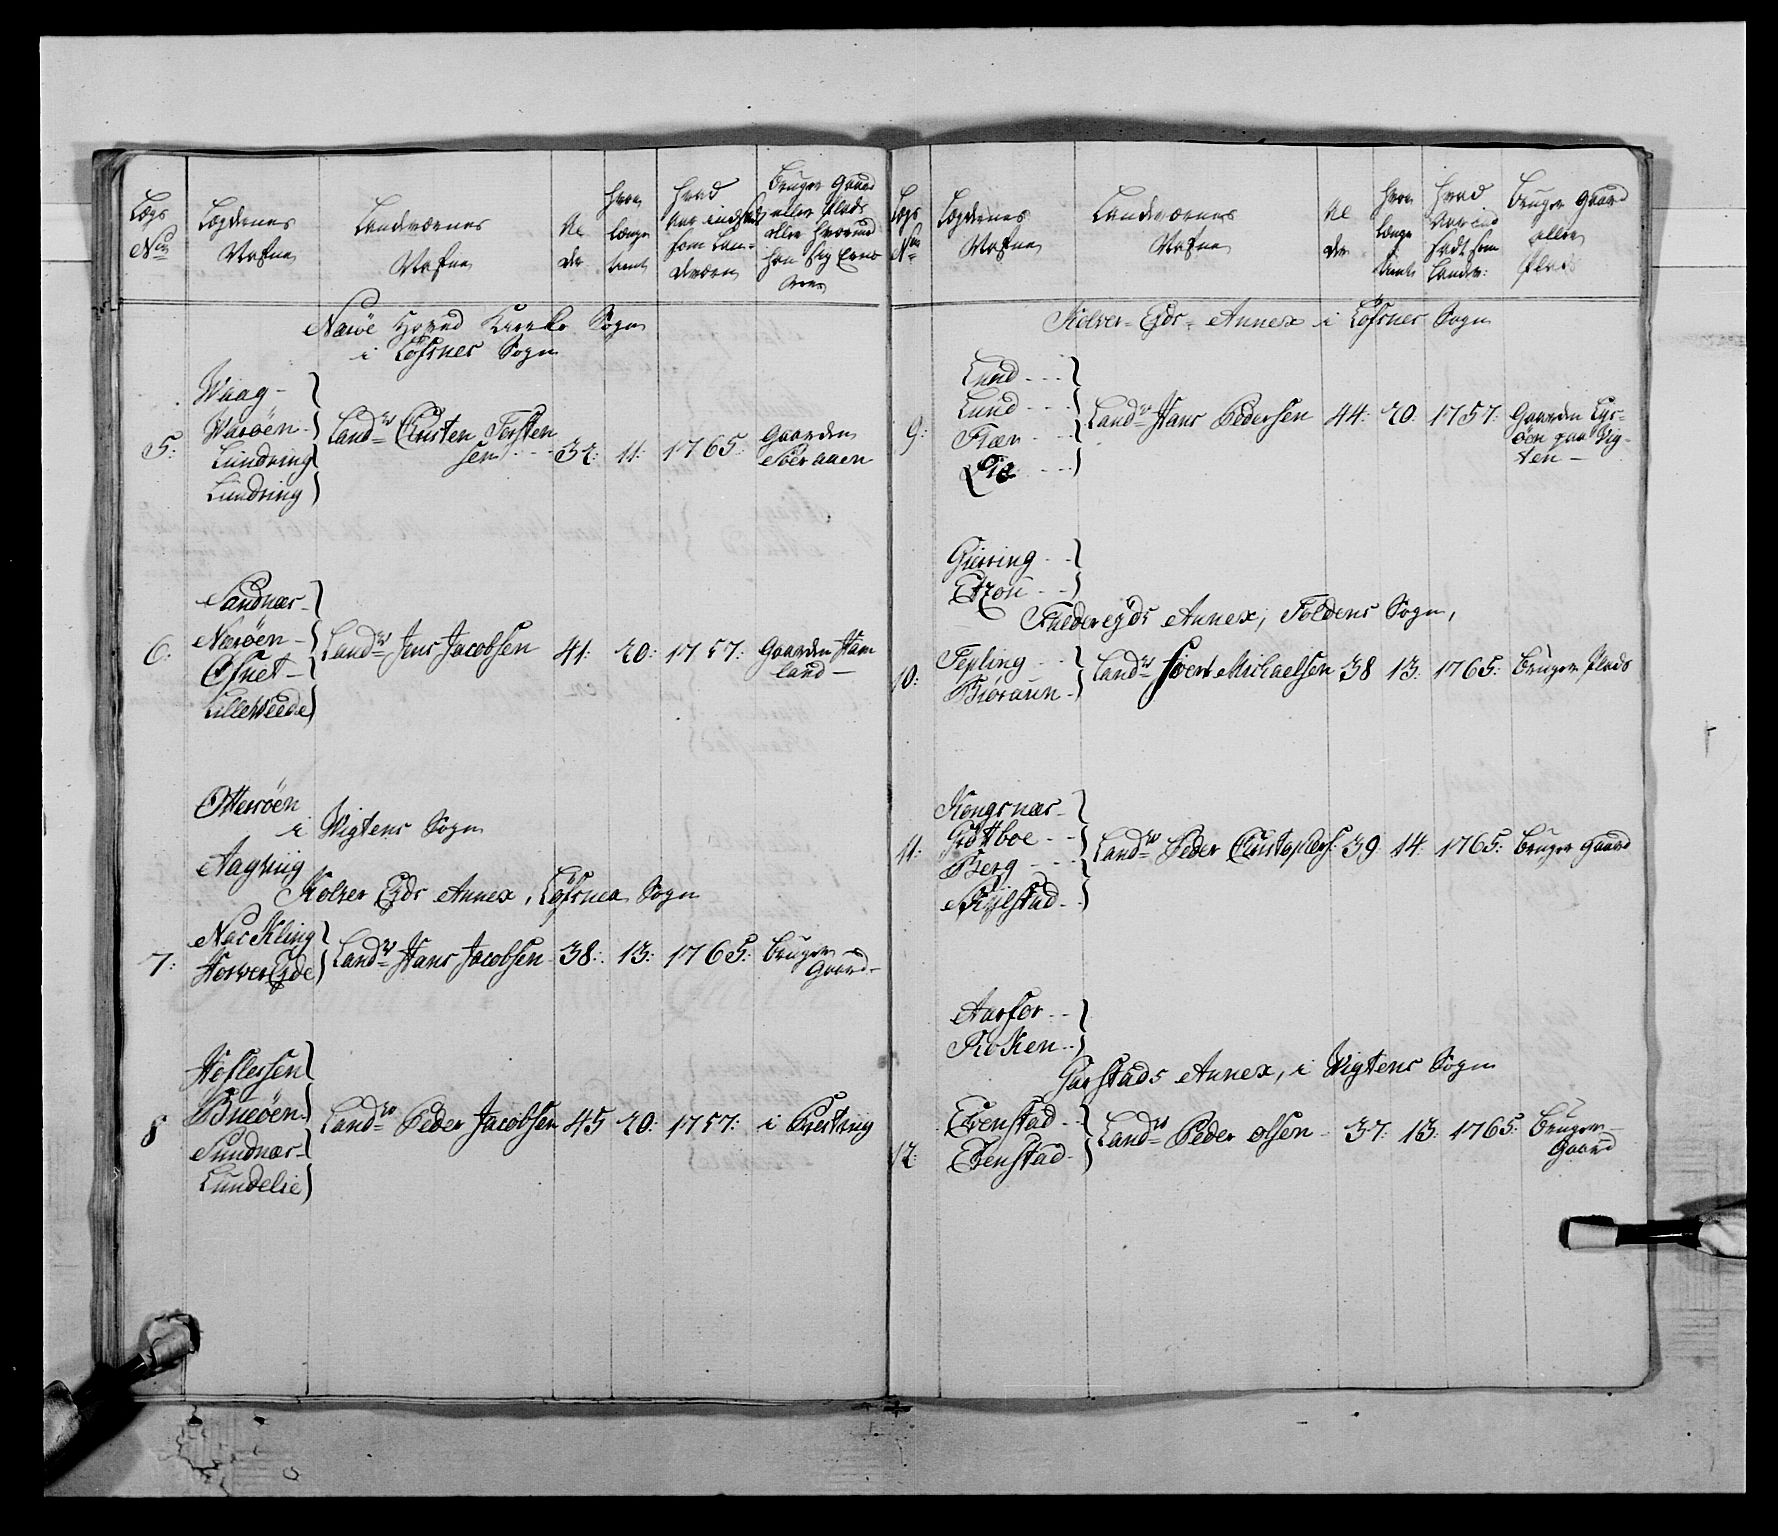 Lægs
No
Lægdernes
Nafne
Landværnes
Nafne
Al
der
Hvor
længe
tient
Hvad
Aar indsadt
som Lan-
dværn
Bruger Gaard
eller Plads
eller hvormed
han sig Ernæ-
rer
Næröe Hoved Kirke Sogn
i Löfsnes Sogn
5:
Waag -
Waröen -
Lundring
Lundring
Landv: Christen Torsten
sen
32: 11: 1765:
Gaarden
Söeraaen
6:
Sandnæs -
Naröen -
Ofsnet -
Lilleweede
Landv: Jens Jacobsen 41: 20: 1757:
Gaarden Ham
land -
Otteröen
i Wigtens Sogn
Aagvüg
Kolver Eyds Annex, Löfsnes Sogn
7:
Næs Kling
Horver Eyde
Landv: Hans Jacobsen 38: 13: 1765:
bruger
Gaard -
8
Hoflessen
Bueöen
Sundnæs -
Lundelie
Landv: Peder Jacobsen 45 20: 1757: i Præsting
Lægs
No
Lægdernes
Nafne
Landværnes
Nafne
Al
der
Hvor
længe
tient
Hvad
Aar ind
sadt som
Landv:
Bruger Gaard
eller
Plads
Kolver = Eyds = Annex i Löfsnes Sogn
9:
Lund - - -
Lund - - -
Flær - - -
Lie - - -
Landv: Hans Pedersen 44: 20: 1757:
Gaarden Lyr-
öen paa Vig-
ten -
Gierring - -
- -
Foldereyds Annex, Foldens Sogn,
10:
Tepling - -
Biöraaen -
Landv: Sivert Michaelsen 38 13: 1765: bruger Plads
11:
Kongsnæs -
Gröttboe - -
Berg - - -
Kiylstad - -
Landv: Peder Christophers: 39 14: 1765: bruger Gaard
Aarfor - -
Roken - -
Garstads Annex, i Wigtens Sogn
12:
Evenstad - -
Evenstad -
Landv: Peder Olsen - 37: 13: 1765:
bruger -
Gaard